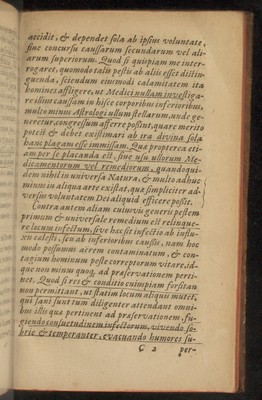 accidit, & dependet sola ab ipsius voluntate,
sine concursu caussarum secundarum vel ali-
arum superiorum. Quod si quispiam me inter-
rogaret, quomodo talis pestis ab aliis esset distin-
guenda, sciendum eiusmodi calamitatem ita
homines affligere, ut Medici nullam investiga-
re illius caussam in hisce corporibus inferioribus,
multo minus Astrologi ullum stellarum, unde ge-
neretur, congressum afferre possint, quare merito
potest & debet existimari ab ira divina sola
hanc plagam esse immissam. Quapropterea eti-
am per se placanda est, sine usu ullorum Me-
dicamentorum vel remediorum, quandoqui-
dem nihil in universa Natura, & multo adhuc
minus in aliqua arte existat, quæ simpliciter ad-
versus voluntatem Dei aliquid efficere possit.
Contra autem aliam cuiusvis generis pestem
primum & universale remedium est relinque-
re locum infectum, sive hæc sit infectio ab influ-
xu cælesti, seu ab inferioribus caussis, nam hoc
modo possumus aërem contaminatum, & con-
tagium hominum peste correptorum vitare, id-
que non minus quoq, ad præservationem perti-
net. Quod si res & conditio cuiuspiam forsitan
non permittant, ut statim locum aliquis mutet,
qui sani sunt tum diligenter attendant omni-
bus illis quæ pertinent ad præservationem, fu-
giendo consuetudinem infectorum, vivendo so-
brie & temperanter, evacuando humores su-
C 2 per-